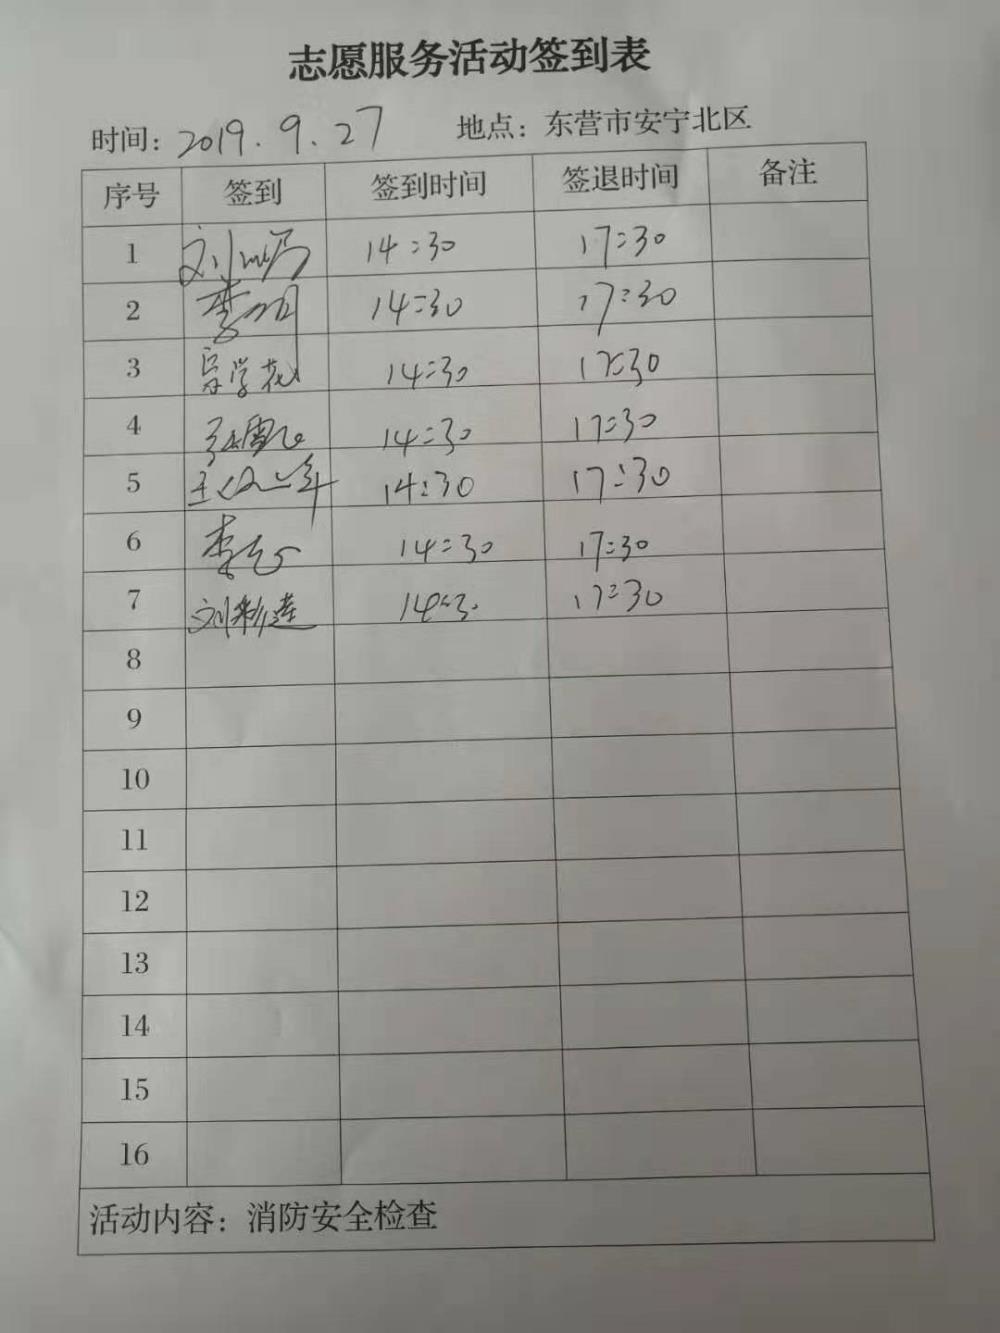 志愿服务活动签到表
时间: 2019.9.27 地点: 东营市安宁北区
序号 签到 签到时间 签退时间 备注
1 14:30 17:30
2 李明 14:30 17:30
3 14:30 17:30
4 14:30 17:30
5 14:30 17:30
6 14:30 17:30
7 刘彩莲 14:30 17:30
8
9
10
11
12
13
14
15
16
活动内容: 消防安全检查